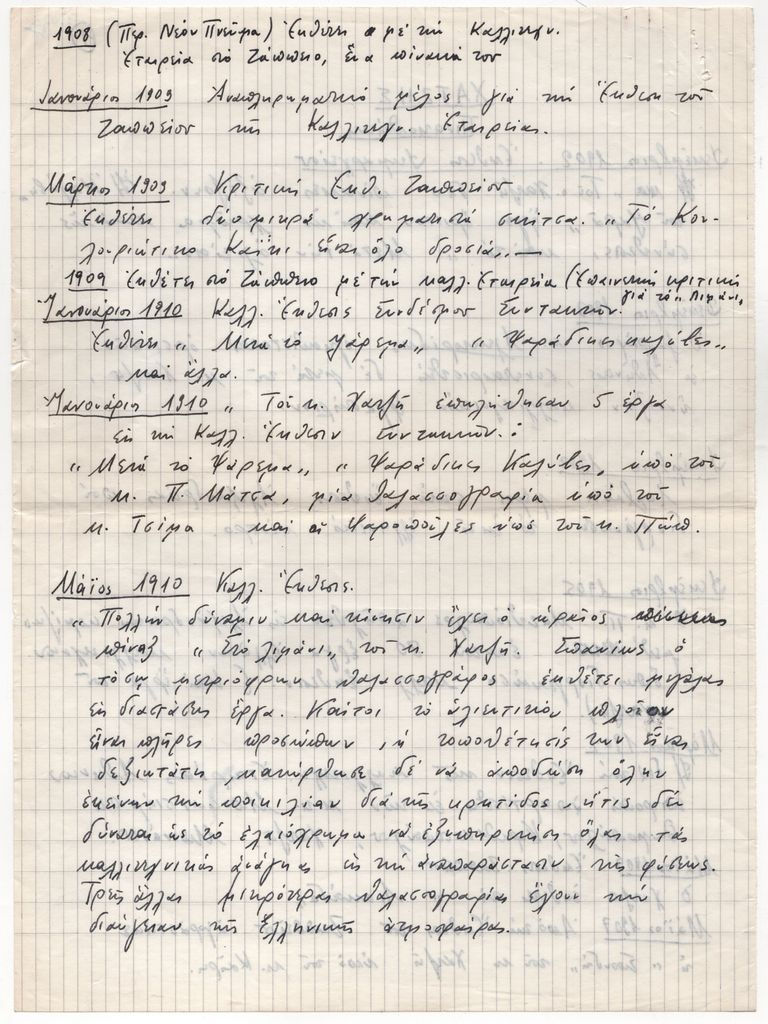 1908 (Περ. Νέον Πνεῦμα) Ἐκθέτει μέ τήν Καλλιτεχν.
Ἑταιρεία στό Ζάππειο, ἕνα πίνακά του
Ἰανουάριος 1909 Ἀναπληρωματικό μέλος γιά τήν Ἔκθεση τοῦ
Ζαππείου τῆς Καλλιτεχν. Ἑταιρείας.
Μάρτιος 1909 Κριτική Ἐκθ. Ζαππείου
Ἐκθέτει δύο μικρά χρωματιστά σκίτσα. „Τό Κου-
λουριώτικο Καΐκι εἶναι ὅλο δροσιά„. —
1909 Ἐκθέτει στό Ζάππειο μέ τήν καλλ. Ἑταιρεία (Ἐπαινετική κριτική
γιά τό „Λιμάνι„
Ἰανουάριος 1910 Καλλ. Ἔκθεσις Συνδέσμου Συντακτῶν.
Ἐκθέτει „Μετά τό ψάρεμα„ „Ψαράδικες καλύβες„
καί ἄλλα.
Ἰανουάριος 1910 „Τοῦ κ. Χατζῆ ἐπωλήθησαν 5 ἔργα
εἰς τήν Καλλ. Ἔκθεσιν Συντακτῶν.:
„Μετά τό Ψάρεμα„ „Ψαράδικες Καλύβες, ὑπό τοῦ
κ. Π. Μάτσα, μία θαλασσογραφία ὑπό τοῦ
κ. Τσίμα καί οἱ Ψαροπούλες ὑπό τοῦ κ.
Μάϊος 1910 Καλλ. Ἔκθεσις.
„Πολλήν δύναμιν καί κίνησιν ἔχει ὁ ὡραῖος
πίναξ „Στό λιμάνι„ τοῦ κ. Χατζῆ. Σπανίως ὁ
τόσῳ μετριόφρων θαλασσογράφος ἐκθέτει μεγάλας
εἰς διαστάσεις ἔργα. Καίτοι τό ἁλιευτικόν πλοῖον
εἶναι πλῆρες προσώπων, ἡ τοποθέτησίς των εἶναι
δεξιωτάτη, κατώρθωσε δέ νά ἀποδώσῃ ὅλην
ἐκείνην τήν ποικιλίαν διά τῆς κρητίδος, ἥτις δέν
δύναται ὡς τό ἐλαιόχρωμα νά ἐξυπηρετήσῃ ὅλας τάς
καλλιτεχνικάς ἀνάγκας εἰς τήν ἀναπαράστασιν τῆς φύσεως.
Τρεῖς ἄλλαι μικρότεραι θαλασσογραφίαι ἔχουν τήν
διαύγειαν τῆς Ἑλληνικῆς ἀτμοσφαίρας.